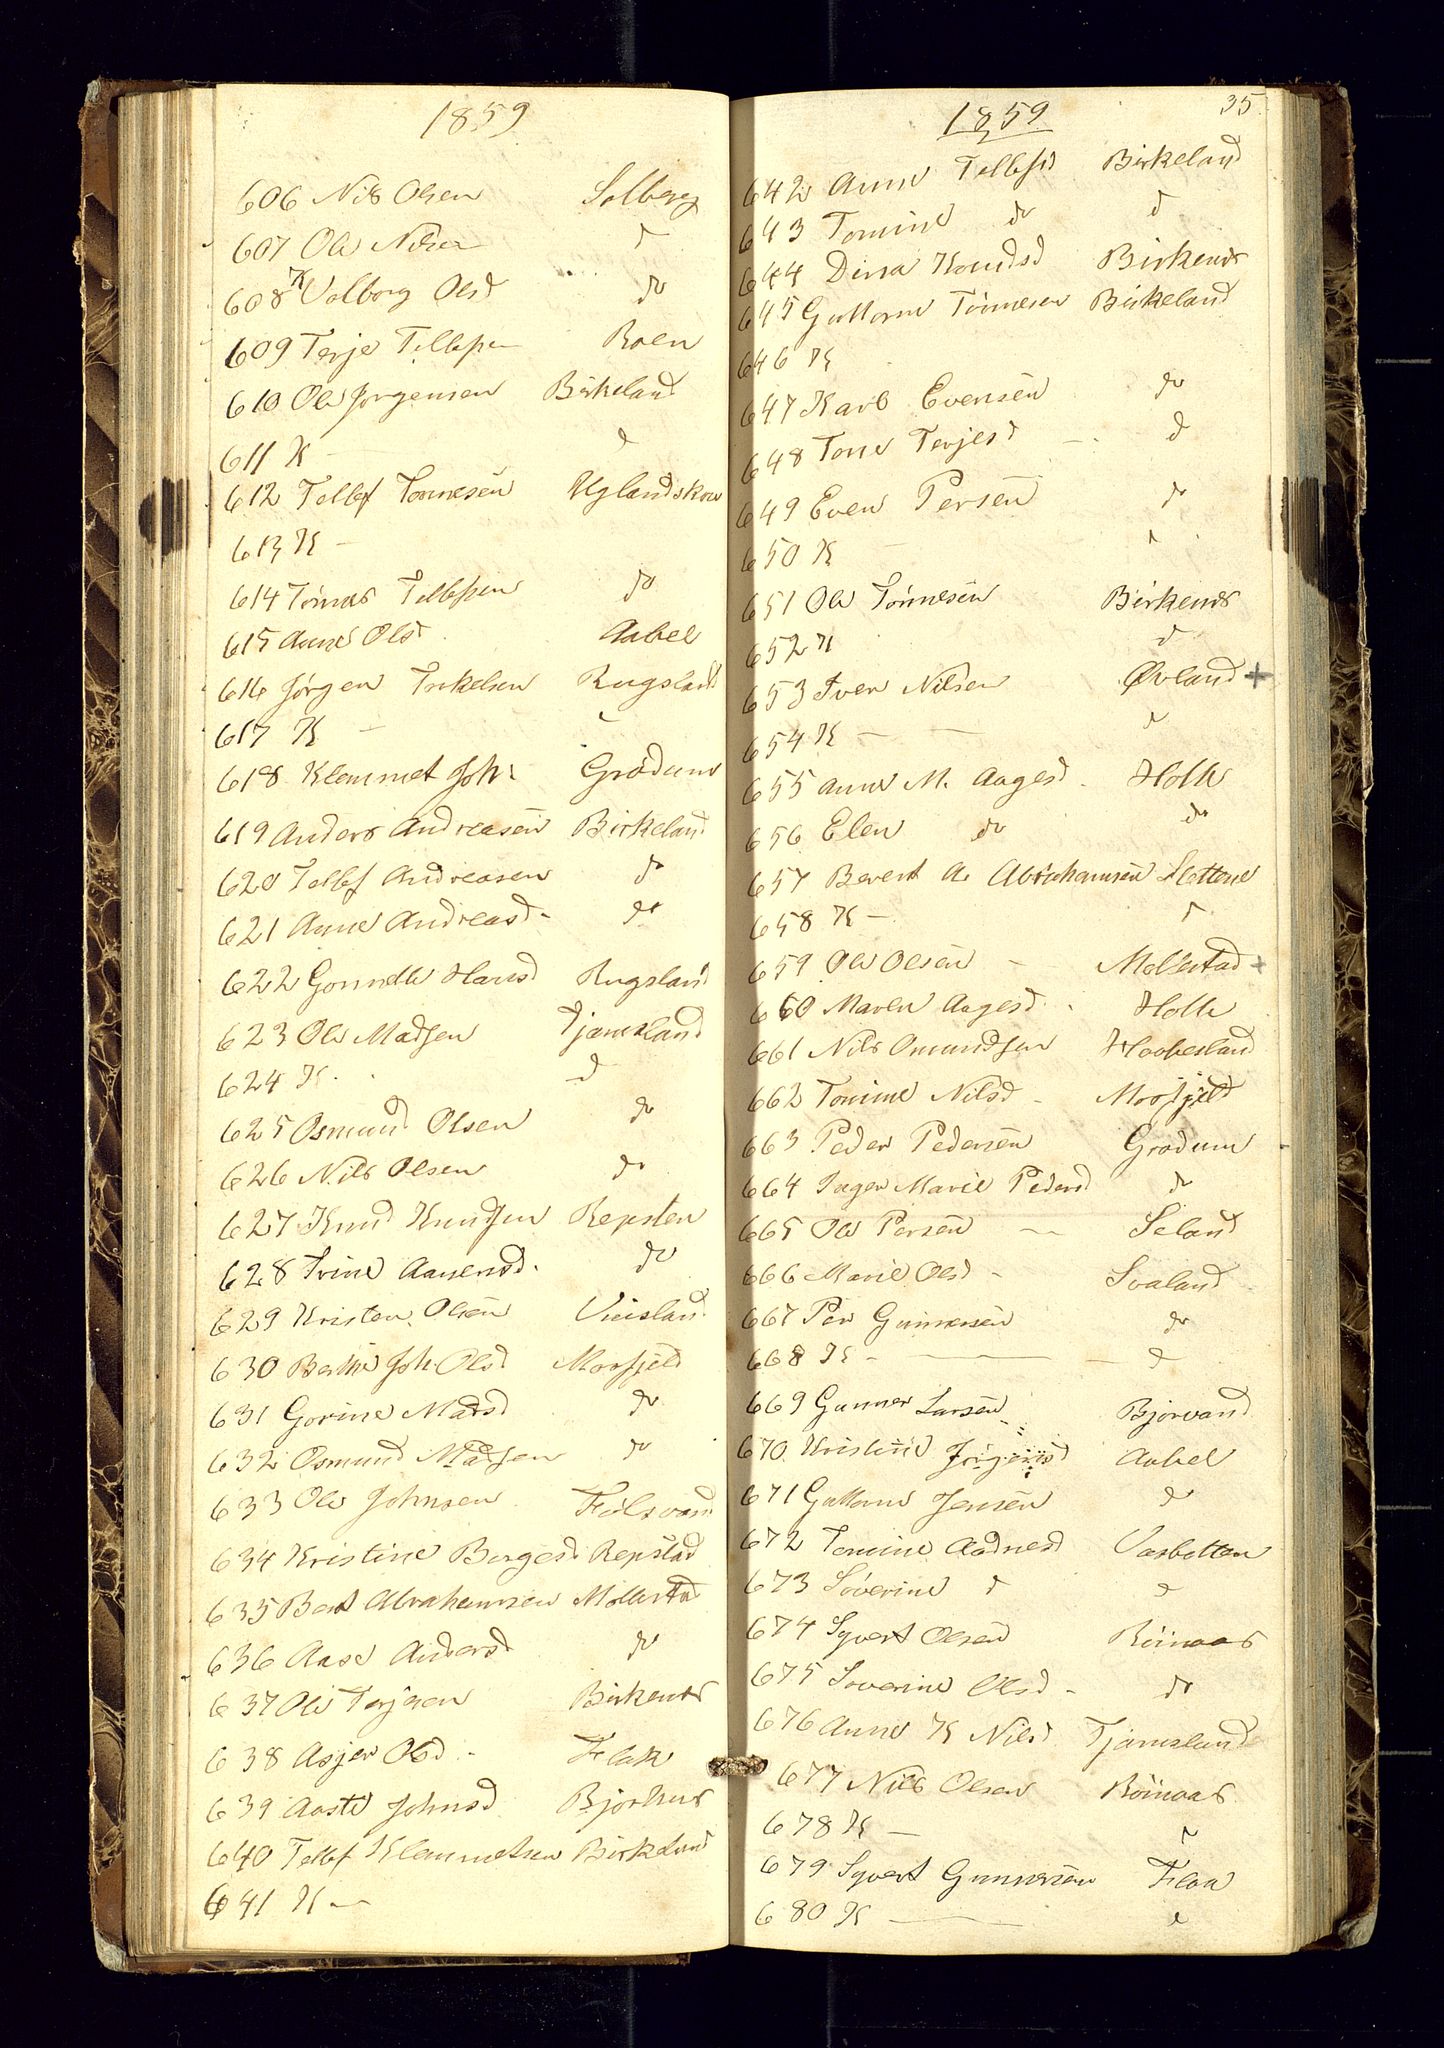 1859
606 Nils Olsen Solberg
607 Ole Nilsen d
608 K Valborg Olsd do
609 Terje Tellefsen Roen
610 Ole Jørgensen Birkeland
611 K — d
612 Tellef Tønnesen Uglandskow
613 K —
614 Tönnes Tellefsen do
615 Anne Olsd Aabel
616 Jørgen Terkelsen Rugsland
617 K —
618 Klemmet Joh. Grødum
619 Anders Andreasen Birkeland
620 Tellef Andreasen do
621 Anne Andreasd - do
622 Gonnelle Hansd Rugsland
623 Ole Madsen Tjamsland
624 K. d
625 Osmund Olsen do
626 Nils Olsen do
627 Knud Knudsen Repsten
628 Trine Aanensd. do
629 Kristen Olsen Vinisland
630 Berthe Joh. Olsd Moosfjeld
631 Gorine Madsd do
632 Osmund Madsen do
633 Ole Johnsen
634 Kristine Borgesd Repstad
635 Bent Abrahamsen Mollestad
636 Aase Andersd do
637 Ole Terjesen Birkenes
638 Asjer Olsd - Flak
639 Aaste Johnsd Bjorhus
640 Tellef Klemmetsen Birkeland
641 K —
1859 35
642 Anne Tellefsd Birkeland
643 Tomine do d
644 Dina Knudsd Birkenes
645 Guttorm Tönnesen Birkeland
646 K
647 Karl Evensen do
648 Tone Terjesd - d
649 Even Persen do
650 K —
651 Ole Tönnesen Birkenes
652 K d
653 Iver Nilsen Øvland +
654 K — —
655 Anne M. Aagesd. Holle
656 Elen do do
657 Berent A. Abrahamsen Slettene
658 K —
659 Ole Olsen - Mollestad +
660 Maren Aagesd. Holle
661 Nils Omundsen Haabesland
662 Tomine Nilsd - Moosfjeld
663 Peder Pedersen Grødum
664 Inger Marie Pedersd do
665 Ole Persen — Seland
666 Marie Olsd - Svaland
667 Per Gunnersen do
668 K - — - d
669 Gunner Larsen Bjorvand
670 Kristine Jörgensd Aabel
671 Guttorm Jensen do
672 Tomine Aadnesd Vasbotten
673 Söverine d d
674 Syvert Olsen Röinaas
675 Soverine Olsd - do
676 Anne K Nilsd Tjamsland
677 Nils Olsen Röinaas
678 K —
679 Syvert Gunnersen Flaa
680 K — d